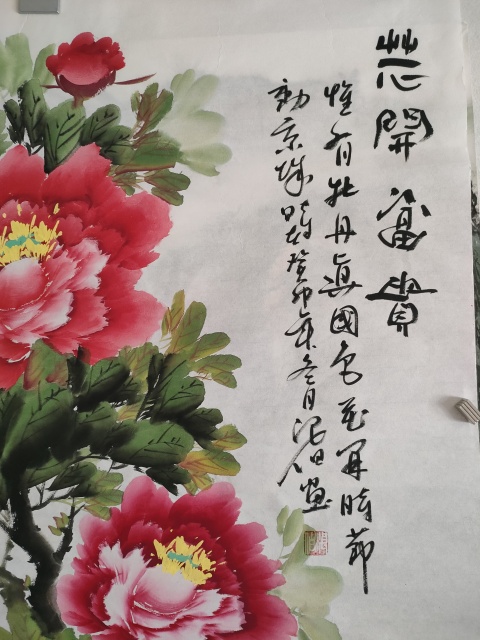 花開富貴
惟有牡丹真國色花開時節
動京城時癸卯年冬月泥伯畫